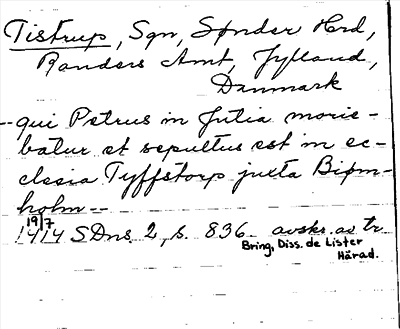 Tistrup, Sgn, Sønder Hrd,
Randers Amt, Jylland,
Danmark
--qui Petrus in Jutia morie-
batur et sepultus est in ec-
clesia Tyffstorp juxta Biørn-
holm--
19/7
1414 SDns. 2, s. 836. avskr. av tr.
Bring, Diss. de Lister
Härad.